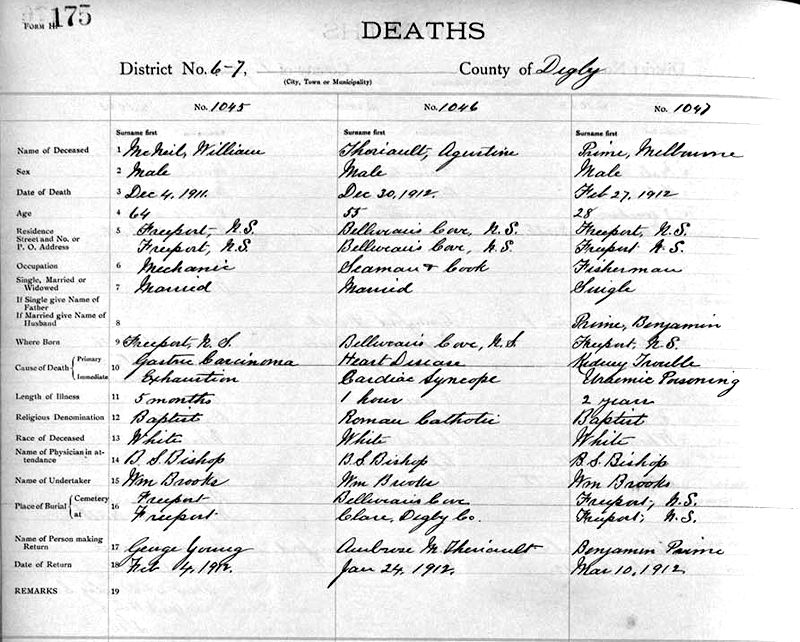 FORM H. 175
DEATHS
District No. 6-7, County of Digby
(City, Town or Municipality)
No. 1045 No. 1046 No. 1047
Surname first Surname first Surname first
Name of Deceased 1 McNeil, William Thoriault, Agustine Prime, Melbourne
Sex 2 Male Male Male
Date of Death 3 Dec 4, 1911. Dec 30, 1912. Feb 27, 1912
Age 4 64 55 28
Residence 5 Freeport, N.S. Belliveau's Cove, N.S. Freeport, N.S.
Street and No. or
P. O. Address Freeport, N.S. Belliveau's Cove, N.S. Freeport N.S.
Occupation 6 Mechanic Seaman & Cook Fisherman
Single, Married or
Widowed 7 Married Married Single
If Single give Name of
Father
If Married give Name of
Husband 8 Prime, Benjamin
Where Born 9 Freeport, N.S. Belliveau's Cove, N.S. Freeport, N.S.
Cause of Death 10 Primary Gastric Carcinoma Heart Disease Kidney Trouble
Immediate Exhaustion Cardiac Syncope Uraemic Poisoning
Length of Illness 11 5 months 1 hour 2 years
Religious Denomination 12 Baptist Roman Catholic Baptist
Race of Deceased 13 White White White
Name of Physician in at-
tendance 14 B.S. Bishop B.S. Bishop B.S. Bishop
Name of Undertaker 15 Wm Brooks Wm Brooks Wm Brooks
Place of Burial 16 Cemetery Freeport Belliveau's Cove Freeport, N.S.
at Freeport Clare, Digby Co. Freeport, N.S.
Name of Person making
Return 17 George Young Ambrose M. Theriault Benjamin Prime
Date of Return 18 Feb 4, 1912. Jan 24, 1912. Mar 10, 1912
REMARKS 19